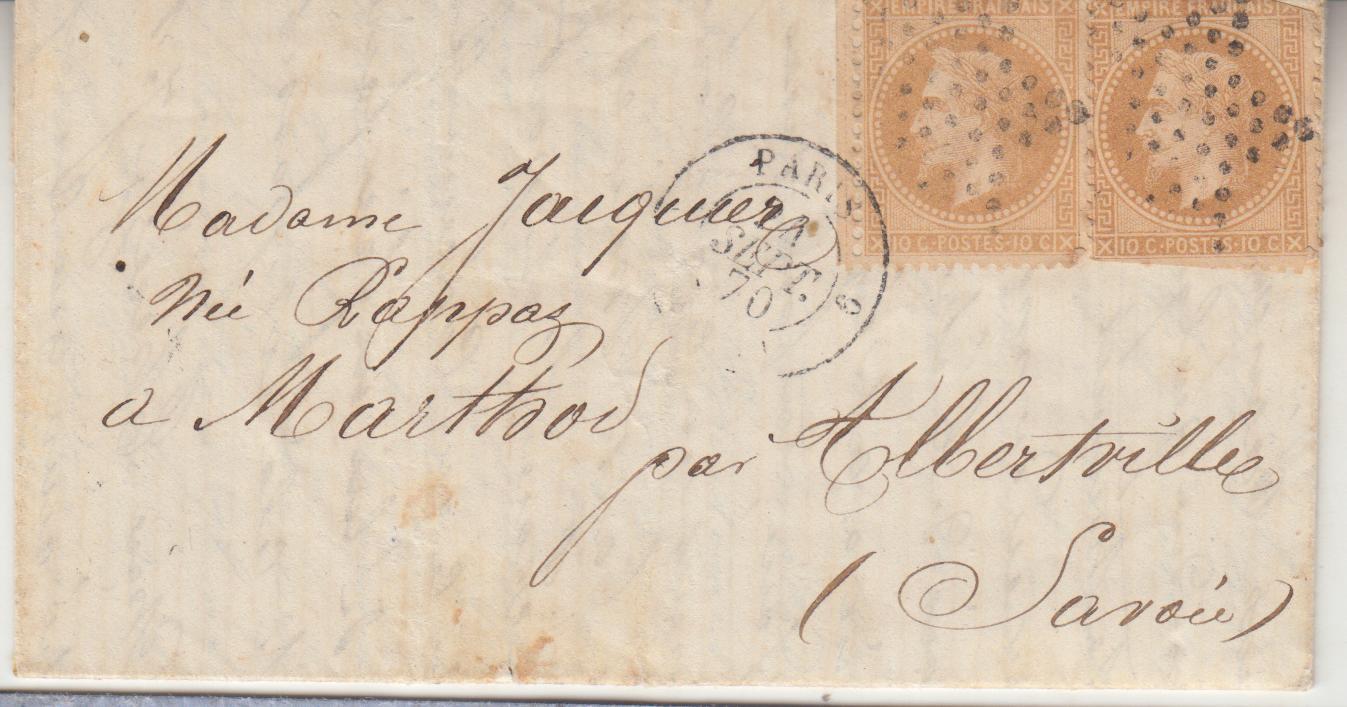 EMPIRE FRANÇAIS
EMPIRE FRANÇAIS
10 C · POSTES · 10 C
10 C · POSTES · 10 C
PARIS
SEPT.
70
Madame Jacquier
Née Rappaz
a Marthod
par Albertville
(Savoie)